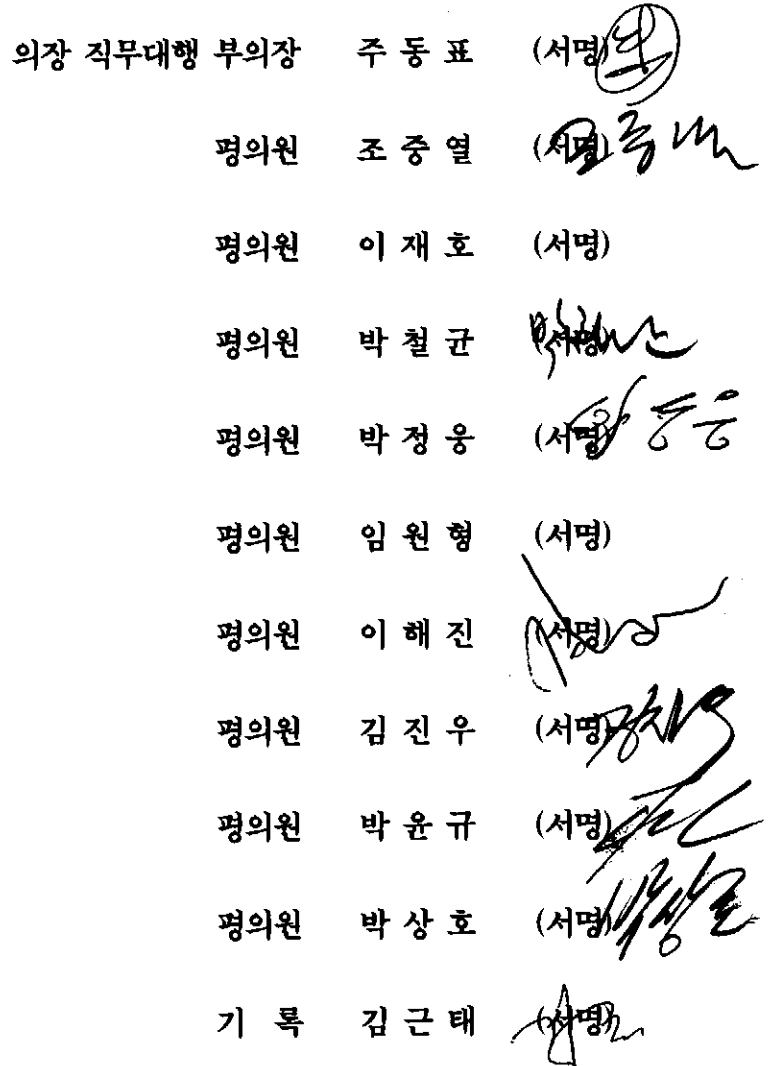 의장 직무대행 부의장 주 동 표 (서명)
평의원 조 중 열 (서명) 조중열
평의원 이 재 호 (서명)
평의원 박 철 균 (서명)
평의원 박 정 웅 (서명)
평의원 임 원 형 (서명)
평의원 이 해 진 (서명)
평의원 김 진 우 (서명)
평의원 박 윤 규 (서명)
평의원 박 상 호 (서명) 박상호
기 록 김 근 태 (서명)